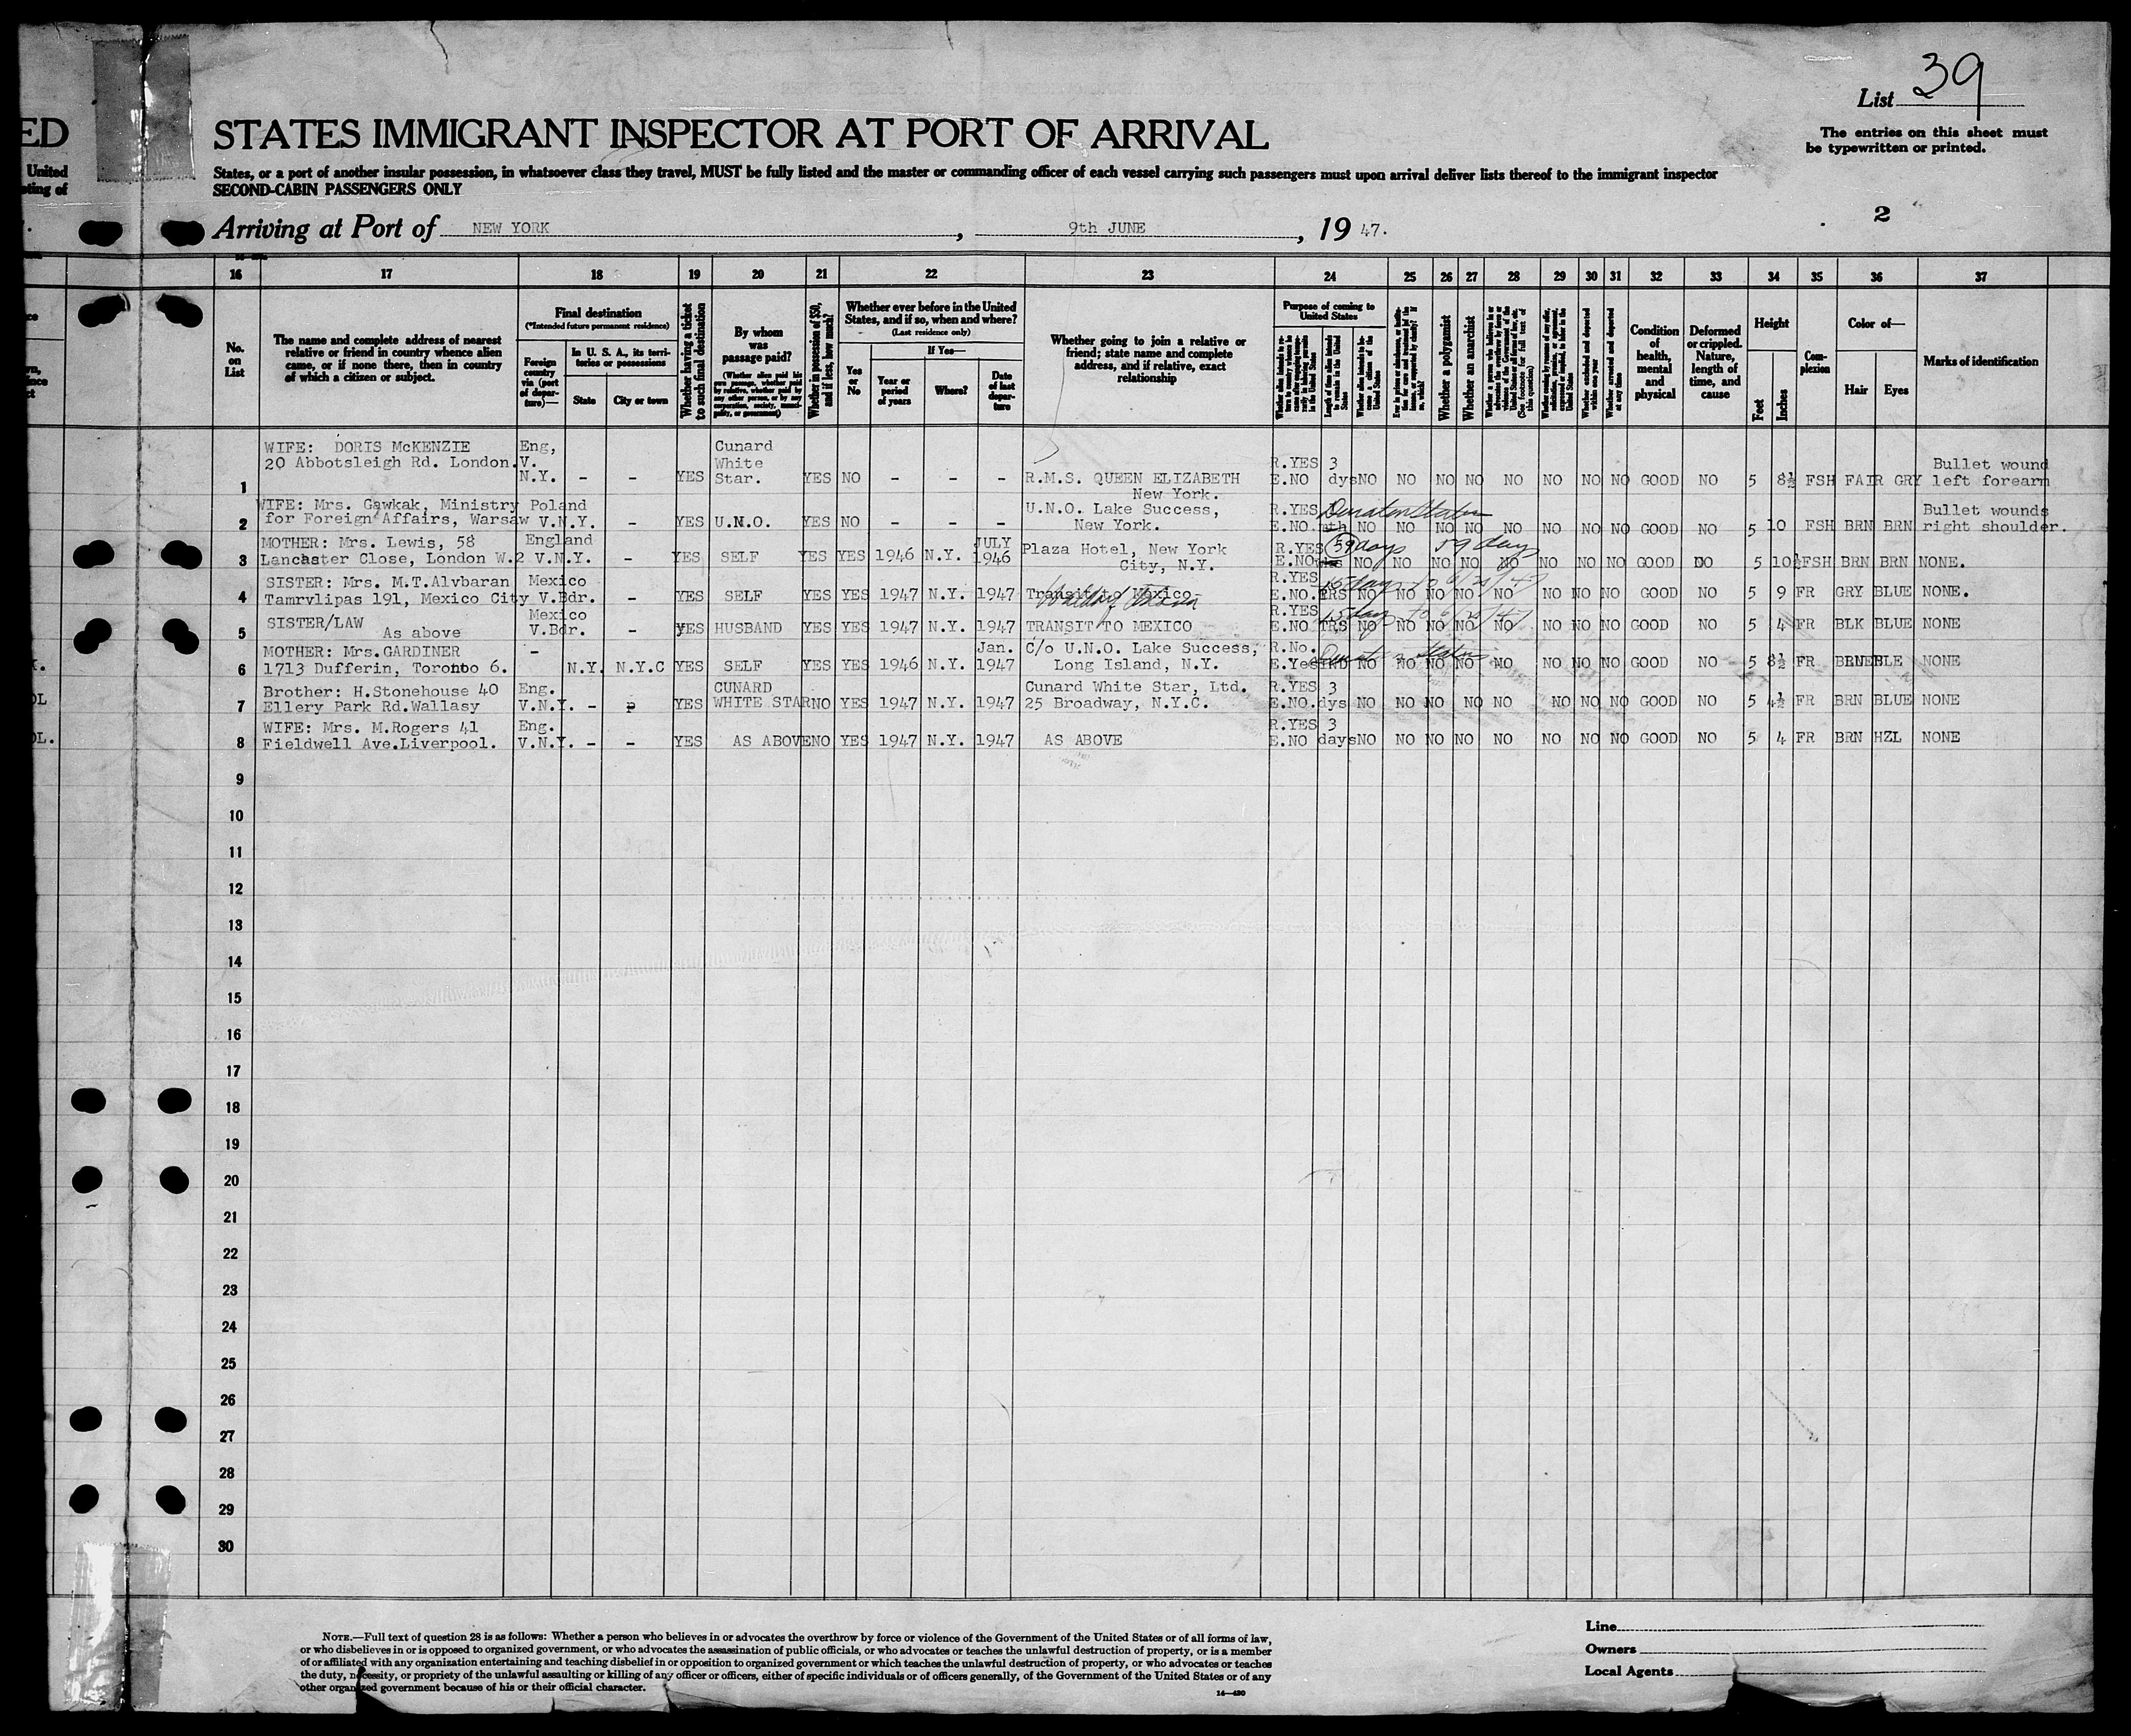 List 39
ED
STATES IMMIGRANT INSPECTOR AT PORT OF ARRIVAL
The entries on this sheet must
be typewritten or printed.
United
States, or a port of another insular possession, in whatsoever class they travel, MUST be fully listed and the master or commanding officer of each vessel carrying such passengers must upon arrival deliver lists thereof to the immigrant inspector
SECOND-CABIN PASSENGERS ONLY
2
Arriving at Port of NEW YORK, 9th JUNE, 19 47.
16 17 18 19 20 21 22 23 24 25 26 27 28 29 30 31 32 33 34 35 36 37
No. on List
The name and complete address of nearest relative or friend in country whence alien came, or if none there, then in country of which a citizen or subject.
Final destination
(*Intended future permanent residence)
Foreign country via (port of departure)—
In U. S. A., its territories or possessions
State
City or town
Whether having a ticket to such final destination
By whom was passage paid?
(Whether alien paid his own passage, whether paid by relative, whether paid by any other person, or by any corporation, society, municipality, or government)
Whether in possession of $50, and if less, how much?
Whether ever before in the United States, and if so, when and where?
(Last residence only)
Yes or No
If Yes—
Year or period of years
Where?
Date of last departure
Whether going to join a relative or friend; state name and complete address, and if relative, exact relationship
Purpose of coming to United States
Length of time alien intends to remain in the United States
Whether a polygamist
Whether an anarchist
Whether excluded and deported within one year
Whether arrested and deported at any time
Condition of health, mental and physical
Deformed or crippled. Nature, length of time, and cause
Height
Feet
Inches
Complexion
Color of—
Hair
Eyes
Marks of identification
1 WIFE: DORIS McKENZIE 20 Abbotsleigh Rd. London. Eng, V. N.Y. - - YES Cunard White Star. YES NO - - - R.M.S. QUEEN ELIZABETH New York. R.YES E.NO 3 dys NO NO NO NO NO NO NO NO GOOD NO 5 8½ FSH FAIR GRY Bullet wound left forearm
2 WIFE: Mrs. Gawkak, Ministry for Foreign Affairs, Warsaw Poland V.N.Y. - YES U.N.O. YES NO - - - U.N.O. Lake Success, New York. R.YES E.NO. NO NO NO NO NO NO NO NO GOOD NO 5 10 FSH BRN BRN Bullet wounds right shoulder.
3 MOTHER: Mrs. Lewis, 58 Lancaster Close, London W.2 England V.N.Y. - YES SELF YES YES 1946 N.Y. JULY 1946 Plaza Hotel, New York City, N.Y. R.YES E.NO 59 days 59 days NO NO NO NO NO NO NO NO GOOD NO 5 10½ FSH BRN BRN NONE.
4 SISTER: Mrs. M.T.Alvbaran Tamrvlipas 191, Mexico City Mexico V.Bdr. - YES SELF YES YES 1947 N.Y. 1947 Transit to Mexico R.YES E.NO. TRS 15 days to 6/25/47 NO NO NO NO NO NO NO NO GOOD NO 5 9 FR GRY BLUE NONE.
5 SISTER/LAW As above Mexico V.Bdr. - YES HUSBAND YES YES 1947 N.Y. 1947 TRANSIT TO MEXICO R.YES E.NO TRS 15 days to 6/25/47 NO NO NO NO NO NO NO NO GOOD NO 5 4 FR BLK BLUE NONE
6 MOTHER: Mrs.GARDINER 1713 Dufferin, Toronto 6. - N.Y. N.Y.C YES SELF YES YES 1946 N.Y. Jan. 1947 C/o U.N.O. Lake Success, Long Island, N.Y. R.No. E.Yes NO NO NO NO NO NO NO NO GOOD NO 5 8½ FR BRNE BLE NONE
7 Brother: H.Stonehouse 40 Ellery Park Rd.Wallasy Eng. V.N.Y. - YES CUNARD WHITE STAR NO YES 1947 N.Y. 1947 Cunard White Star, Ltd. 25 Broadway, N.Y.C. R.YES E.NO. 3 dys NO NO NO NO NO NO NO NO GOOD NO 5 4½ FR BRN BLUE NONE
8 WIFE: Mrs. M.Rogers 41 Fieldwell Ave.Liverpool. Eng. V.N.Y. - - YES AS ABOVE NO YES 1947 N.Y. 1947 AS ABOVE R.YES E.NO 3 days NO NO NO NO NO NO NO NO GOOD NO 5 4 FR BRN HZL NONE
9
10
11
12
13
14
15
16
17
18
19
20
21
22
23
24
25
26
27
28
29
30
NOTE.—Full text of question 28 is as follows: Whether a person who believes in or advocates the overthrow by force or violence of the Government of the United States or of all forms of law,
or who disbelieves in or is opposed to organized government, or who advocates the assassination of public officials, or who advocates or teaches the unlawful destruction of property, or is a member
of or affiliated with any organization entertaining and teaching disbelief in or opposition to organized government or which teaches the unlawful destruction of property, or who advocates or teaches
the duty, necessity, or propriety of the unlawful assaulting or killing of any officer or officers, either of specific individuals or of officers generally, of the Government of the United States or of any
other organized government because of his or their official character.
Line
Owners
Local Agents